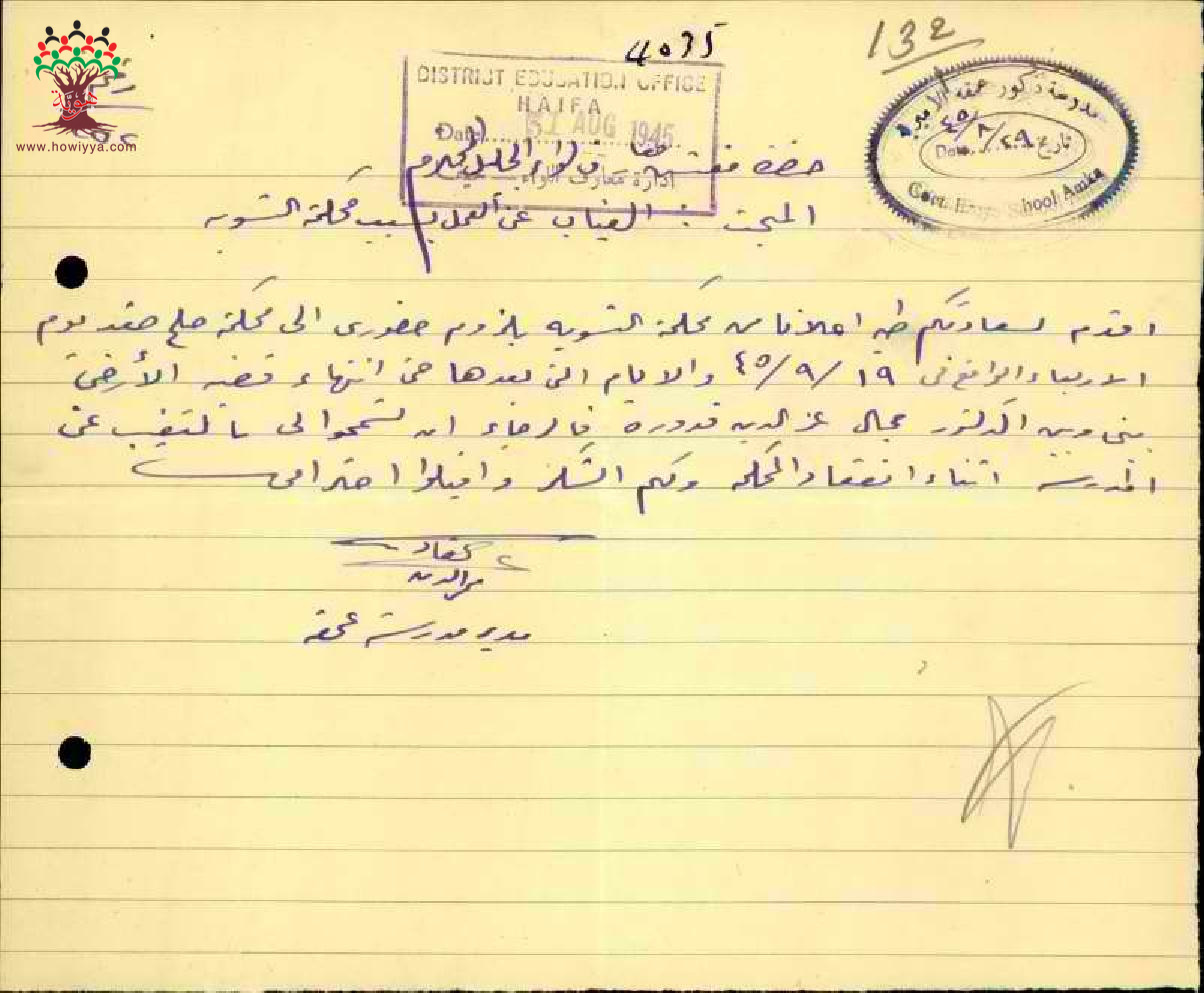 132
4035
DISTRICT EDUCATION OFFICE
HAIFA
Date 31 AUG 1945
إدارة معارف اللواء
مدرسة ذكور عمقه الاميرية
تاريخ ٤٥/٨/٢٩
Date
Govt. Boys' School Amka
هوية
www.howiyya.com
حضرة مفتش معارف لواء الجليل المحترم
المبحث : الغياب عن العمل بسبب محكمة التسويه
اقدم لسعادتكم طيه اعلانا من محكمة التسويه يلزوم حضوري الى محكمة صلح صفد يوم
الاربعاء الواقع في ١٩/٩/٤٥ والايام التي بعدها حتى انتهاء قضية الأرض
بيني وبين الدكتور جمال عز الدين قدورة فالرجاء ان تسمحوا لي بالتغيب عن
المدرسة اثناء انعقاد المحكمة ولكم الشكر واقبلوا احترامي
مدير مدرسة عمقه